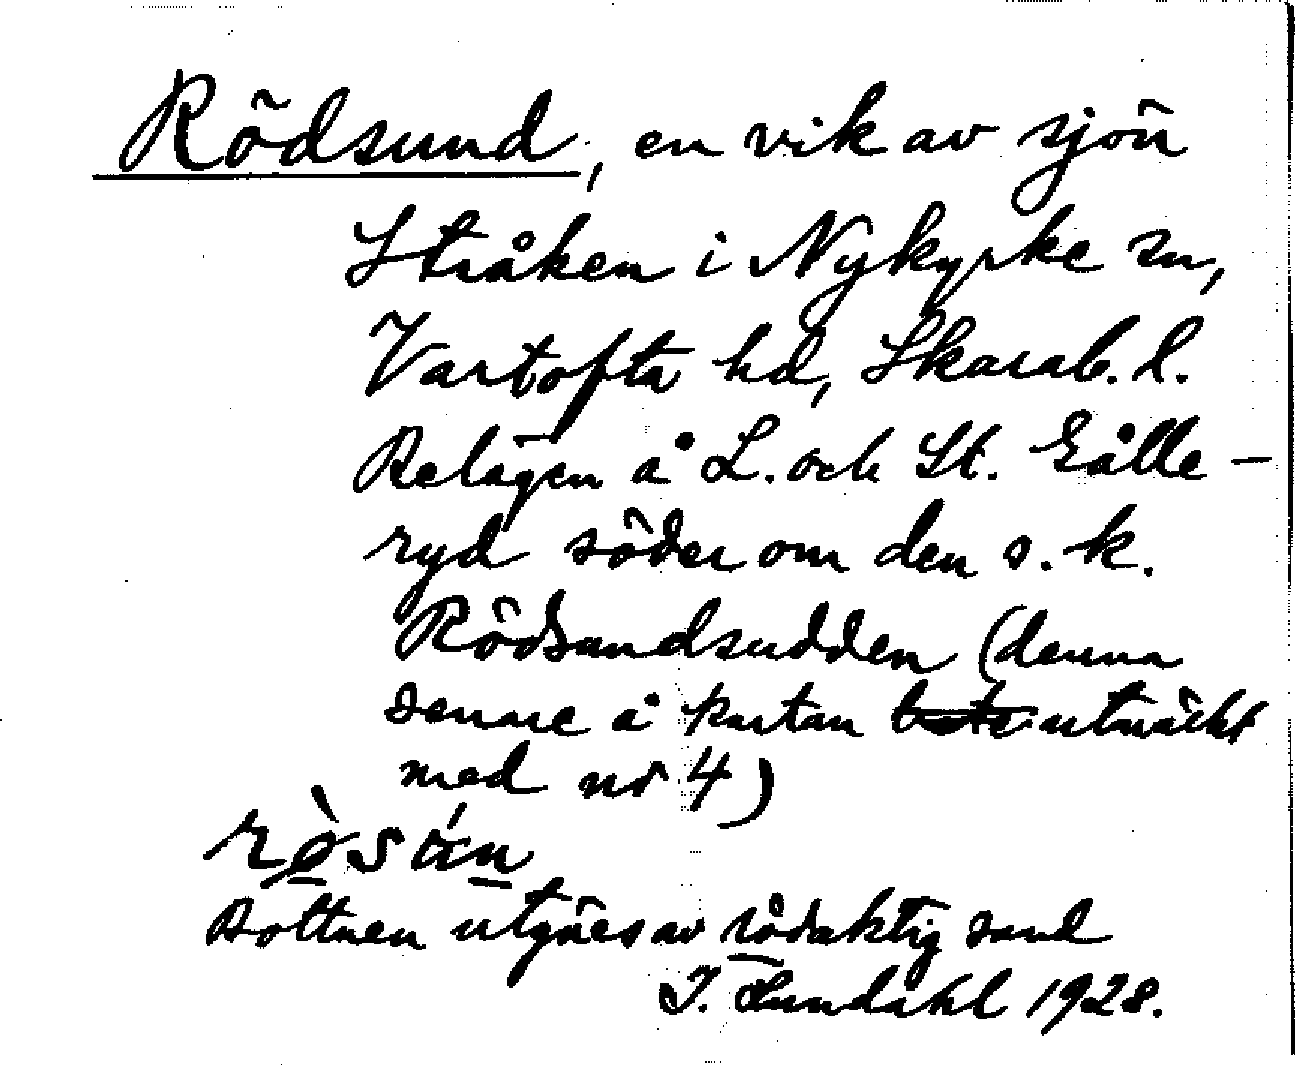 Rödsund, en vik av sjön
Stråken i Nykyrke sn,
Vartofta hd, Skarab. l.
Belägen å L. och St. Gälle-
ryd söder om den s. k.
Rödsandsudden (denna
senare å kartan utmärkt
med nr 4)
Bottnen utgöres av rödaktig sand
I. Lundahl 1928.